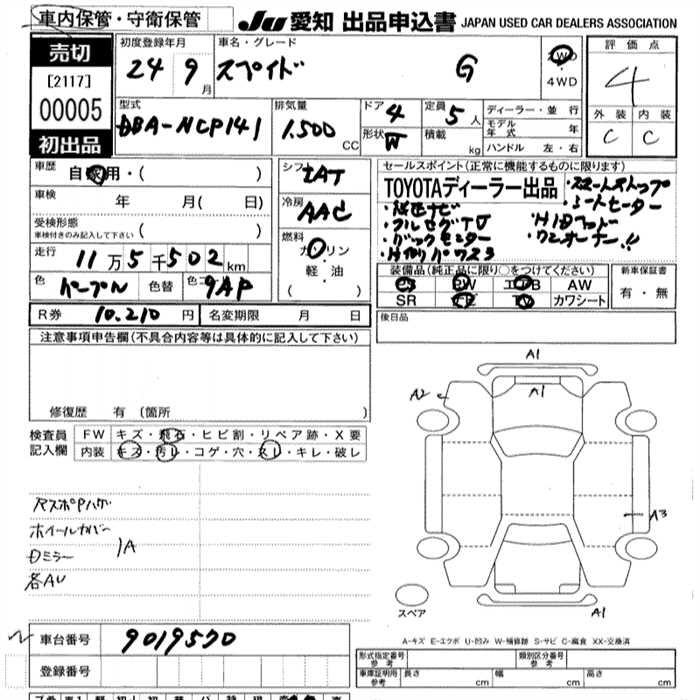 車内保管・守衛保管
JU 愛知 出品申込書 JAPAN USED CAR DEALERS ASSOCIATION
売切
[2117]
00005
初出品
初度登録年月
24 9月
車名・グレード
スペイド G
2WD
4WD
評価点
4
外装 内装
C C
型式
DBA-NCP141
排気量
1.500 CC
ドア 4
形状 W
定員 5人
積載 kg
ディーラー・並行
モデル年式 年
ハンドル 左・右
車歴
自家用・( )
車検 年 月( 日)
受検形態
車検付きのみ記入して下さい ( )
走行
11万5千502km
色 パープル 色替 色コ 9AP
シフト
IAT
冷房
AAC
燃料
ガソリン
軽・油
( )
セールスポイント(正常に機能するものに限ります)
TOYOTAディーラー出品
・スマートストップ
・純正ナビ
・シートヒーター
・フルセグTV
・HIDヘッド
・バックモニター
・ワンオーナー!!
装備品(純正品に限り○をつけてください)
PS PW エアB AW
SR TV カワシート
新車保証書
有・無
R券 10.210円 名変期限 月 日
後日品
注意事項申告欄(不具合内容等は具体的に記入して下さい)
修復歴 有(箇所 )
検査員記入欄
FW キズ・飛石・ヒビ割・リペア跡・X要
内装 キズ・汚レ・コゲ・穴・スレ・キレ・破レ
ホイールカバー
Dミラー
1A
各AU
A1
A2
A1
A3
A1
スペア
A-キズ E-エクボ U-凹み W-補修跡 S-サビ C-腐食 XX-交換済
車台番号 9019570
登録番号
形式指定番号 参考
類別区分番号 参考
車庫証明用 参考 長さ cm 幅 cm 高さ cm